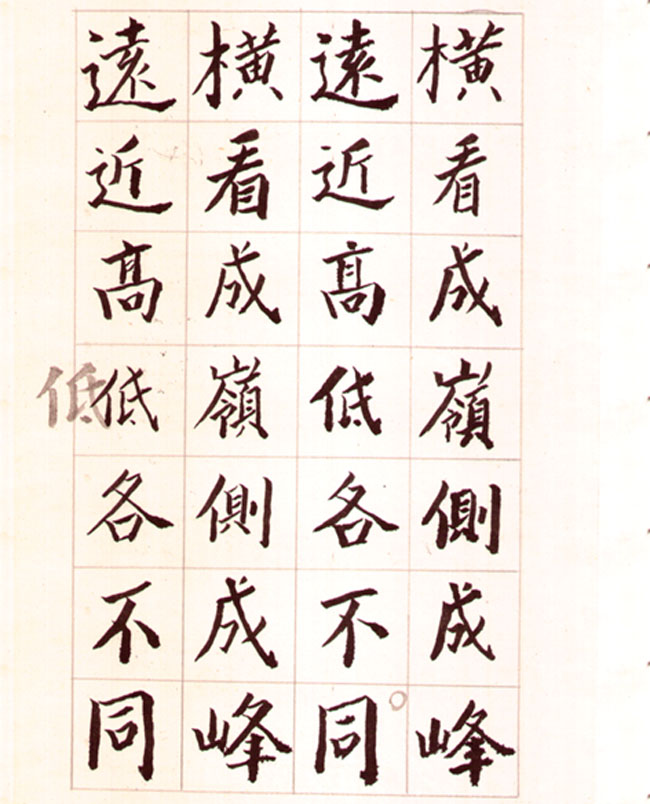 橫看成嶺側成峰
遠近高低各不同
橫看成嶺側成峰
遠近高低各不同
低